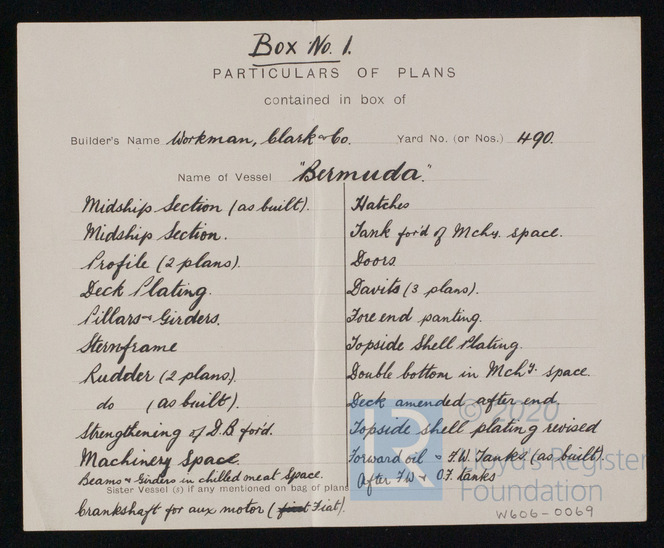 Box No. 1.
PARTICULARS OF PLANS
contained in box of
Builder's Name Workman, Clark & Co. Yard No. (or Nos.) 490.
Name of Vessel "Bermuda"
Midship Section (as built).
Midship Section.
Profile (2 plans).
Deck Plating.
Pillars & Girders.
Sternframe
Rudder (2 plans).
do (as built).
Strengthening of D.B for'd.
Machinery Space.
Beams & Girders in chilled meat Space.
Sister Vessel (s) if any mentioned on bag of plans
Crankshaft for aux motor (fiat Fiat).
Hatches
Tank for'd of Mchy. space.
Doors
Davits (3 plans).
Fore end panting.
Topside Shell Plating.
Double bottom in Mchy. space.
Deck amended after end.
Topside shell plating revised
Forward oil & F.W. Tanks (as built)
After F.W & O.F. tanks
© 2020
Lloyd's Register
Foundation
LR
W606-0069